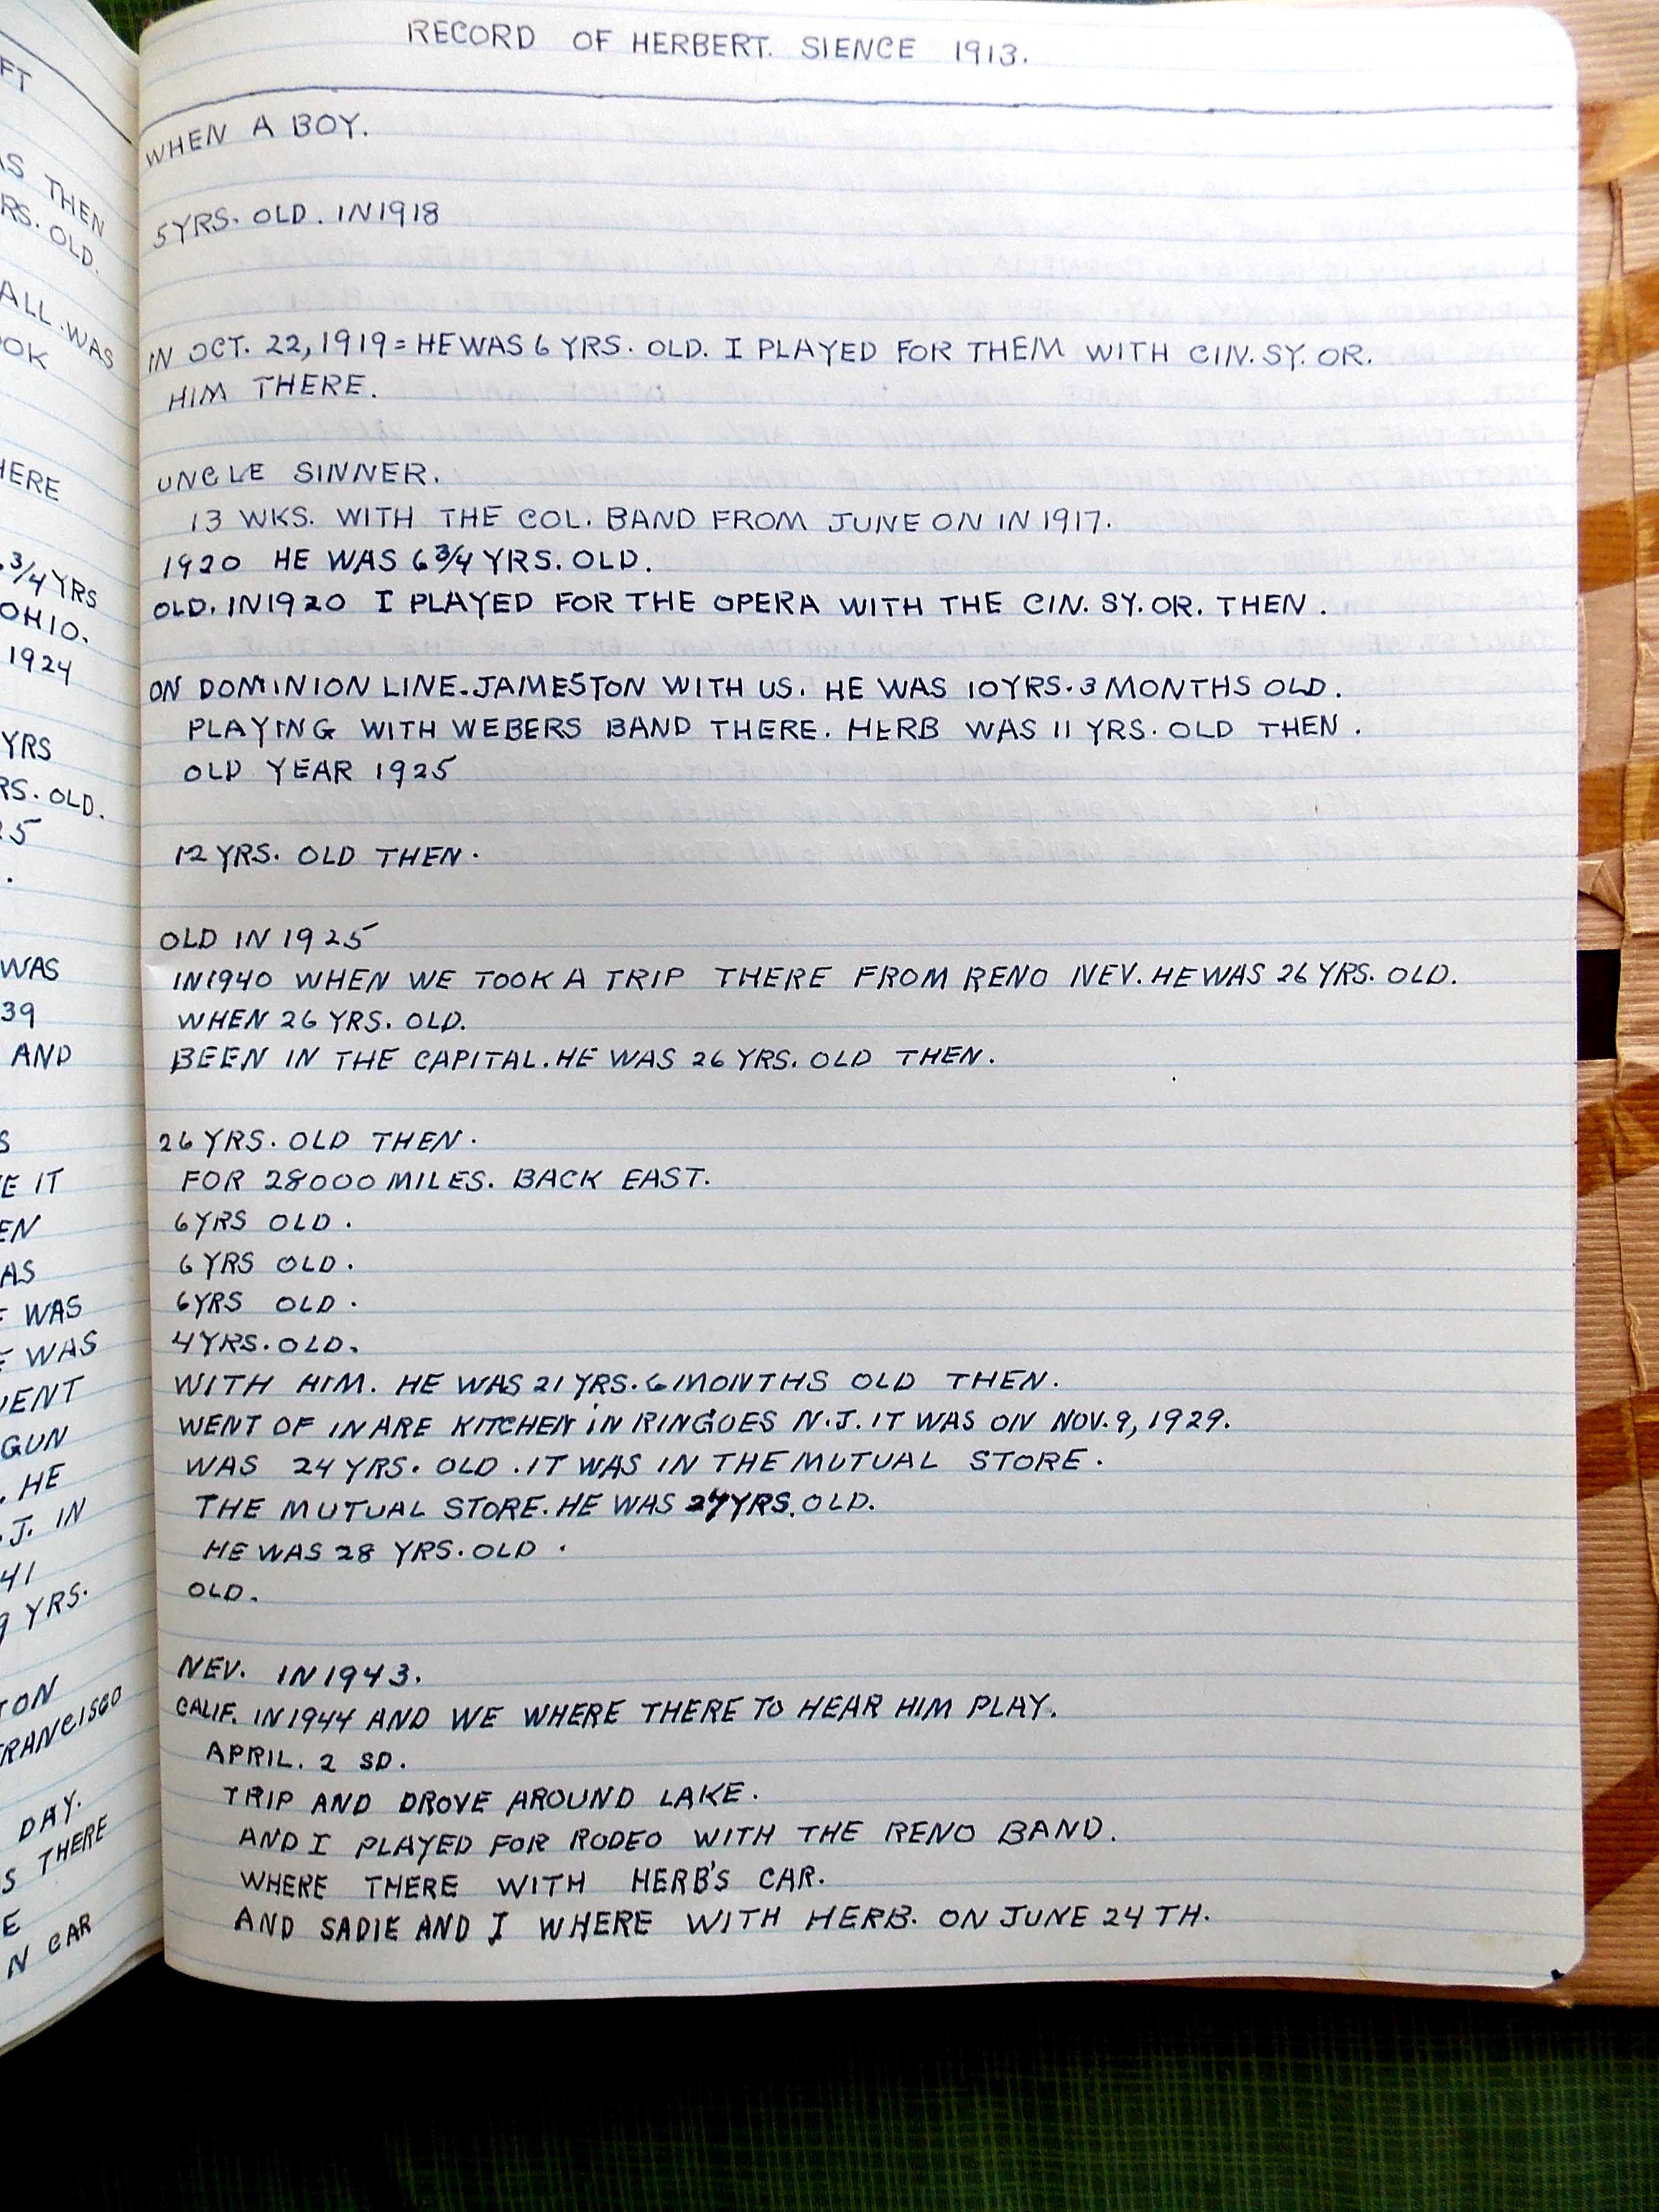 RECORD OF HERBERT. SIENCE 1913.
WHEN A BOY.
5YRS. OLD. IN 1918
IN OCT. 22, 1919 = HE WAS 6 YRS. OLD. I PLAYED FOR THEM WITH CIN. SY. OR.
HIM THERE.
UNCLE SINNER.
13 WKS. WITH THE COL. BAND FROM JUNE ON IN 1917.
1920 HE WAS 6 3/4 YRS. OLD.
OLD. IN 1920 I PLAYED FOR THE OPERA WITH THE CIN. SY. OR. THEN.
ON DOMINION LINE. JAMESTON WITH US. HE WAS 10 YRS. 3 MONTHS OLD.
PLAYING WITH WEBERS BAND THERE. HERB WAS 11 YRS. OLD THEN.
OLD YEAR 1925
12 YRS. OLD THEN.
OLD IN 1925
IN 1940 WHEN WE TOOK A TRIP THERE FROM RENO NEV. HE WAS 26 YRS. OLD.
WHEN 26 YRS. OLD.
BEEN IN THE CAPITAL. HE WAS 26 YRS. OLD THEN.
26 YRS. OLD THEN.
FOR 28000 MILES. BACK EAST.
6YRS OLD.
6 YRS OLD.
6YRS OLD.
4YRS. OLD.
WITH HIM. HE WAS 21 YRS. 6 MONTHS OLD THEN.
WENT OF IN ARE KITCHEN IN RINGOES N.J. IT WAS ON NOV. 9, 1929.
WAS 24 YRS. OLD. IT WAS IN THE MUTUAL STORE.
THE MUTUAL STORE. HE WAS 24 YRS. OLD.
HE WAS 28 YRS. OLD.
OLD.
NEV. IN 1943.
CALIF. IN 1944 AND WE WHERE THERE TO HEAR HIM PLAY.
APRIL. 2 SD.
TRIP AND DROVE AROUND LAKE.
AND I PLAYED FOR RODEO WITH THE RENO BAND.
WHERE THERE WITH HERB'S CAR.
AND SADIE AND I WHERE WITH HERB. ON JUNE 24 TH.